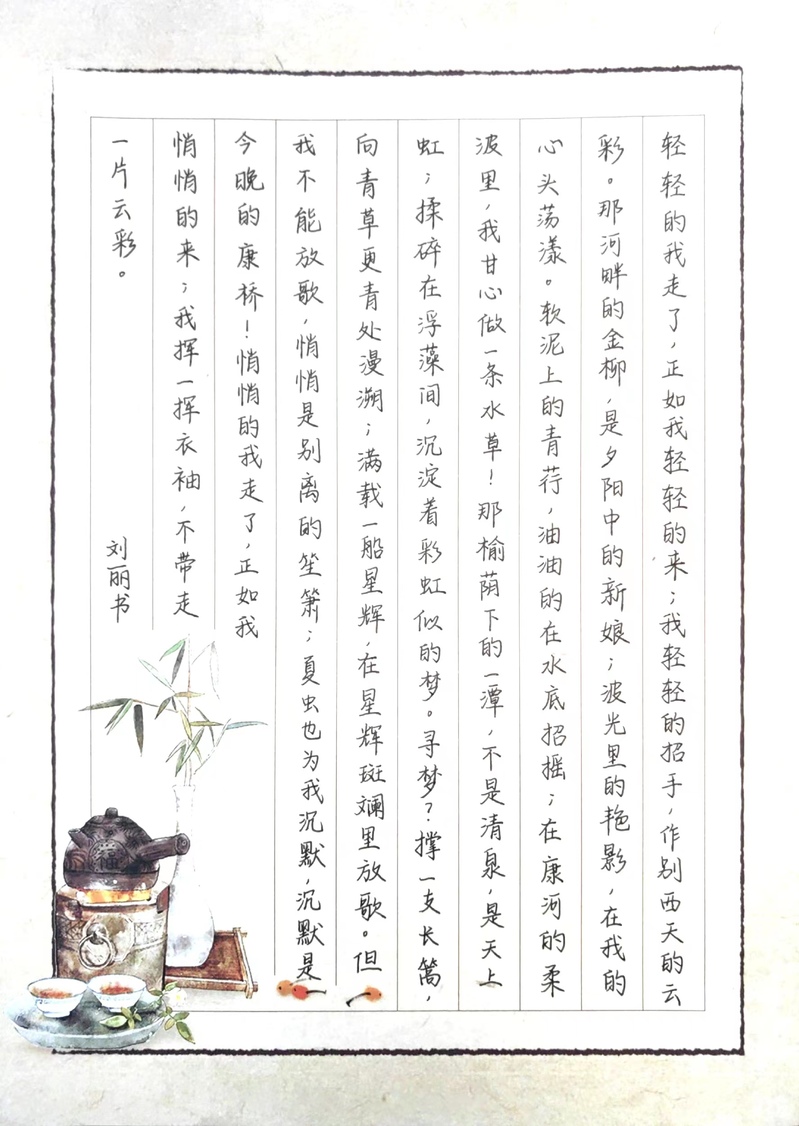 轻轻的我走了，正如我轻轻的来；我轻轻的招手，作别西天的云
彩。那河畔的金柳，是夕阳中的新娘；波光里的艳影，在我的
心头荡漾。软泥上的青荇，油油的在水底招摇；在康河的柔
波里，我甘心做一条水草！那榆荫下的一潭，不是清泉，是天上
虹；揉碎在浮藻间，沉淀着彩虹似的梦。寻梦？撑一支长篙，
向青草更青处漫溯；满载一船星辉，在星辉斑斓里放歌。但
我不能放歌，悄悄是别离的笙箫；夏虫也为我沉默，沉默是
今晚的康桥！悄悄的我走了，正如我
悄悄的来；我挥一挥衣袖，不带走
一片云彩。
刘丽书
福